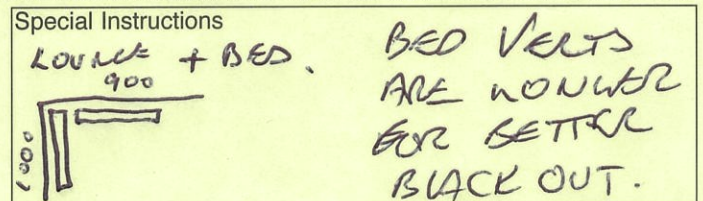 Special Instructions
LOUNGE + BED.
900
1000
BED VERTS
ARE LONGER
FOR BETTER
BLACK OUT.